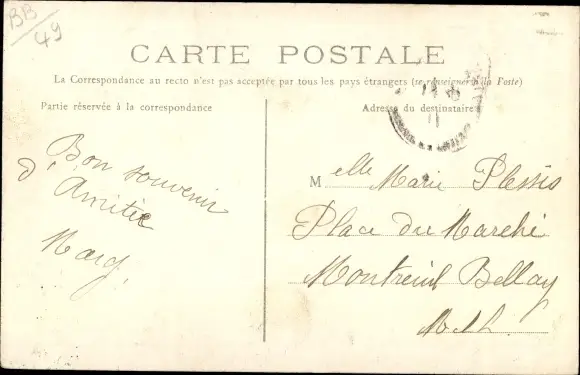 BB
49
CARTE POSTALE
La Correspondance au recto n'est pas acceptée par tous les pays étrangers (se renseigner à la Poste)
Partie réservée à la correspondance
Adresse du destinataire
Bon souvenir
d'Amitié
Marg.
Melle Marie Plessis
Place du Marché
Montreuil Bellay
M & L.